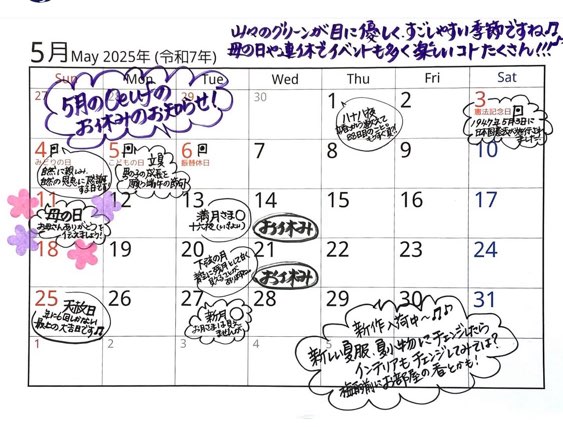 山々のグリーンが目に優しく、すごしやすい季節ですね♫
母の日や連休でイベントも多く楽しいコトたくさん!!!♪
5月 May 2025年 (令和7年)
Sun Mon Tue Wed Thu Fri Sat
5月のOeufの
お休みのお知らせ!
27 30 1 2 3
八十八夜
憲法記念日
1947年5月3日に
日本国憲法が施行され
ました
4 5 6 7 8 9 10
みどりの日 こどもの日 振替休日
自然に親しみ、
自然の恩恵に感謝
する日です
立夏
男の子の成長を
願う端午の節句
11 12 13 14 15 16 17
母の日
お母さんありがとうを
伝えましょう!
満月さま
十六夜(いざよい)
お休み
18 19 20 21 22 23 24
下弦の月
お休み
25 26 27 28 29 30 31
天赦日
年に6回しかない
最上の大吉日です♫
新月
お月さまは見え
ません
新作入荷中〜♪♪
新しい夏服、夏小物にチェンジしたら
インテリアもチェンジしてみては?
梅雨前にお部屋の香とかも!
1 2 3 4 5